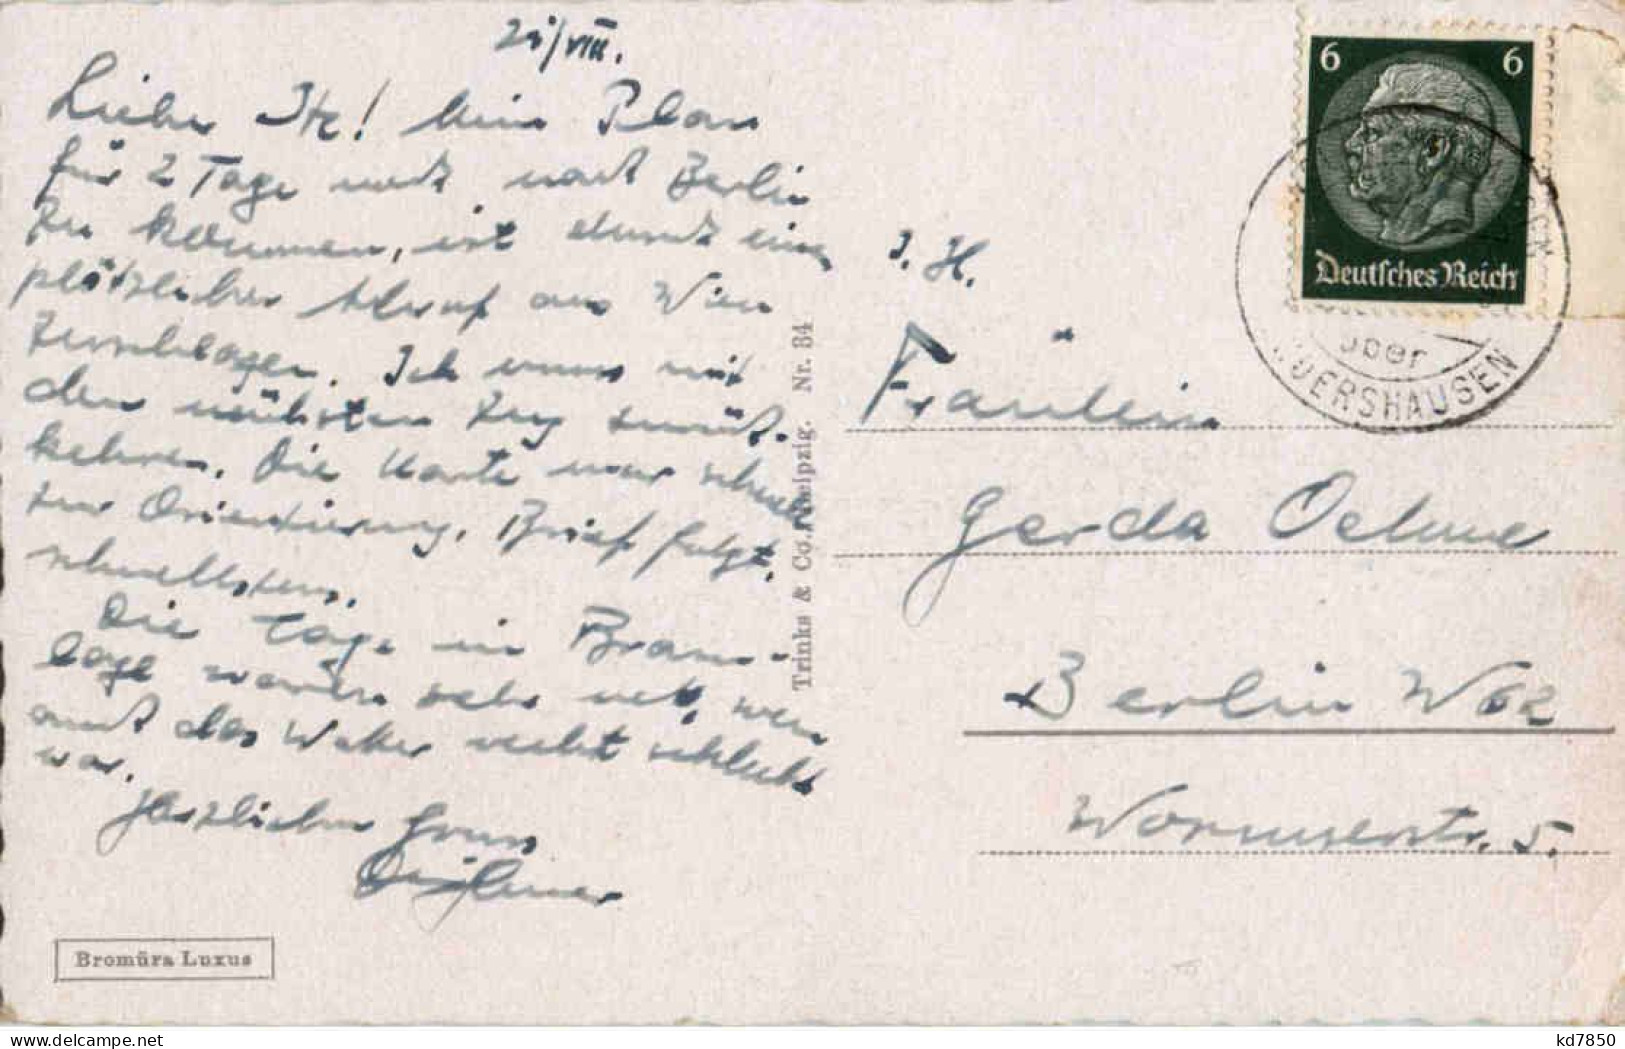 21/VIII.
Liebe Ite! Mein Plan
für 2 Tage noch nach Berlin
zu kommen, ist durch einen
plötzlichen Abruf aus Wien
zerschlagen. Ich muss mit
dem nächsten Zug zurück-
kehren. Die Karte nur schnell
zur Orientierung. Brief folgt
schnellstens.
Die Tage in Braun-
lage waren sehr nett, wenn
auch das Wetter recht schlecht
war.
Herzlichen Gruss
Bromüra Luxus
Trinks & Co. Leipzig. Nr. 84
6 6
Deutsches Reich
über
I. H.
Fräulein
Gerda Oelune
Berlin W62
Wormserstr. 5.
kd7850